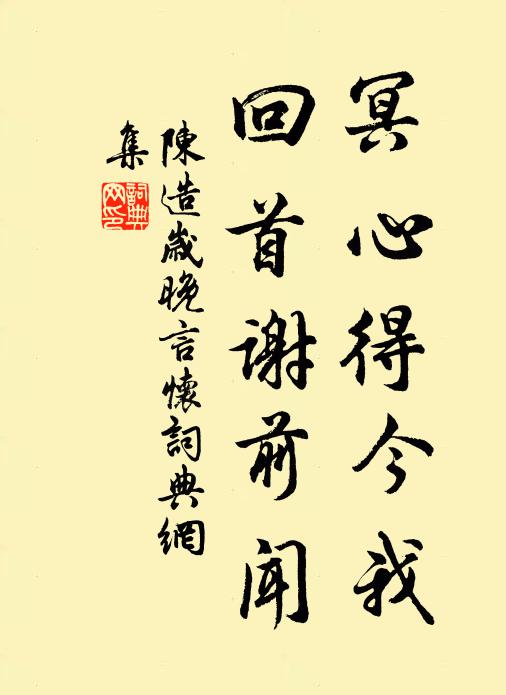 冥心得今我
回首谢前闻
陳造歲晚言懷詞典網
集
詞典
网印